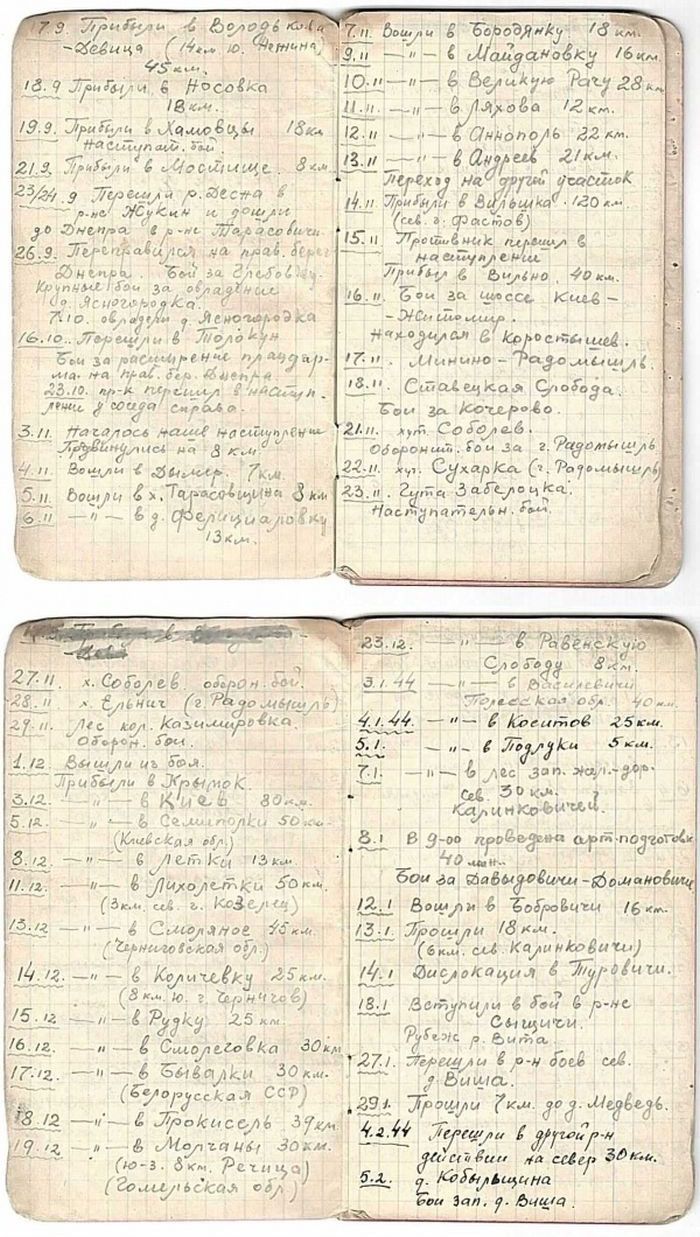 17.9. Прибыли в Володькова
-Девица (14 км ю. Нежина)
45 км.
18.9 Прибыли в Носовка
18 км.
19.9. Прибыли в Хамовцы 18 км
наступат. бой.
21.9. Прибыли в Мостище. 8 км.
23/24.9 Перешли р. Десна в
р-не Жукин и дошли
до Днепра в р-не Тарасовичи
26.9. Переправился на прав. берег
Днепра. Бои за Глебовку-
Крупные бои за овладение
д. Ясногородка.
7.10. овладели д Ясногородка
16.10. Перешли в Толокун
Бои за расширение плацдар-
ма на прав. бер. Днепра.
23.10. пр-к перешил в наступ-
ление у соседа справа.
3.11. Началось наше наступление
Продвинулись на 8 км.
4.11. Вошли в Дымер. 7 км.
5.11 Вошли в х. Тарасовщина 8 км
6.11 —"— в д. Фелициаловку
13 км.
7.11. Вошли в Бородянку 18 км.
9.11 —"— в Майдановку 16 км.
10.11 —"— в Великую Рачу 28 км
11.11 —"— в Ляхова 12 км.
12.11 —"— в Аннополь 22 км.
13.11 —"— в Андреев 21 км.
Переход на другой участок
14.11 Прибыли в Вильшка 120 км
(сев. г. Фастов)
15.11 Противник перешил в
наступление
Прибыл в Вильно 40 км.
16.11 Бои за шоссе Киев-
-Житомир.
Находился в Коростышев.
17.11. Минино-Радомышль.
18.11. Ставецкая Слобода.
Бои за Кочерово.
21.11. хут. Соболев.
Оборонит. бои за г. Радомышль
22.11. хут. Сухарка (г. Радомышль)
23.11. Гута Забелоцка.
Наступательн. бой.
27.11. х. Соболев оборон. бой.
28.11. х. Ельнич (г. Радомышль)
29.11 Лес кол. Казимировка.
Оборон. бои.
1.12 Вышли из боя.
Прибыли в Крымок.
3.12. —"— в Киев 80 км.
5.12 —"— в Семиполки 50 км.
(Киевская обл.)
8.12 —"— в Летки 13 км.
11.12. —"— в Лихолетки 50 км.
(3 км. сев. г. Козелец)
13.12 —"— в Смоляное 45 км.
(Черниговская обл.)
14.12. —"— в Количевку 25 км.
(8 км. ю. г. Чернигов)
15.12 —"— в Рудку 25 км.
16.12 —"— в Смолеговка 30 км
17.12. —"— в Бывалки 30 км.
(Белорусская ССР)
18.12 —"— в Прокисель 39 км.
19.12 —"— в Молчаны 30 км.
(ю-з. 8 км. Речица)
(Гомельская обл.)
23.12. —"— в Равенскую
Слободу 8 км.
3.1.44 —"— в Василевичи
Полесская обл. 40 км.
4.1.44. —"— в Коситов 25 км.
5.1. —"— в Подлуки 5 км.
7.1. —"— в лес зап. жел-дор.
сев. 30 км.
Калинковичей.
8.1 В 9-00 проведена арт. подготовк
40 мин.
Бои за Давыдовичи-Домановичи
12.1 Вошли в Бобровичи 16 км.
13.1. Прошли 18 км.
(6 км. сев. Калинковичи)
14.1 Дислокация в Туровичи.
18.1 Вступили в бой в р-не
Сыщичи.
Рубеж р. Вита.
27.1. Перешли в р-н боев сев.
д. Виша.
29.1. Прошли 7 км. до д. Медведь.
4.2.44 Перешли в другой р-н
действии на север 30 км.
5.2. д. Кобыльщина
Бои зап. д. Виша.